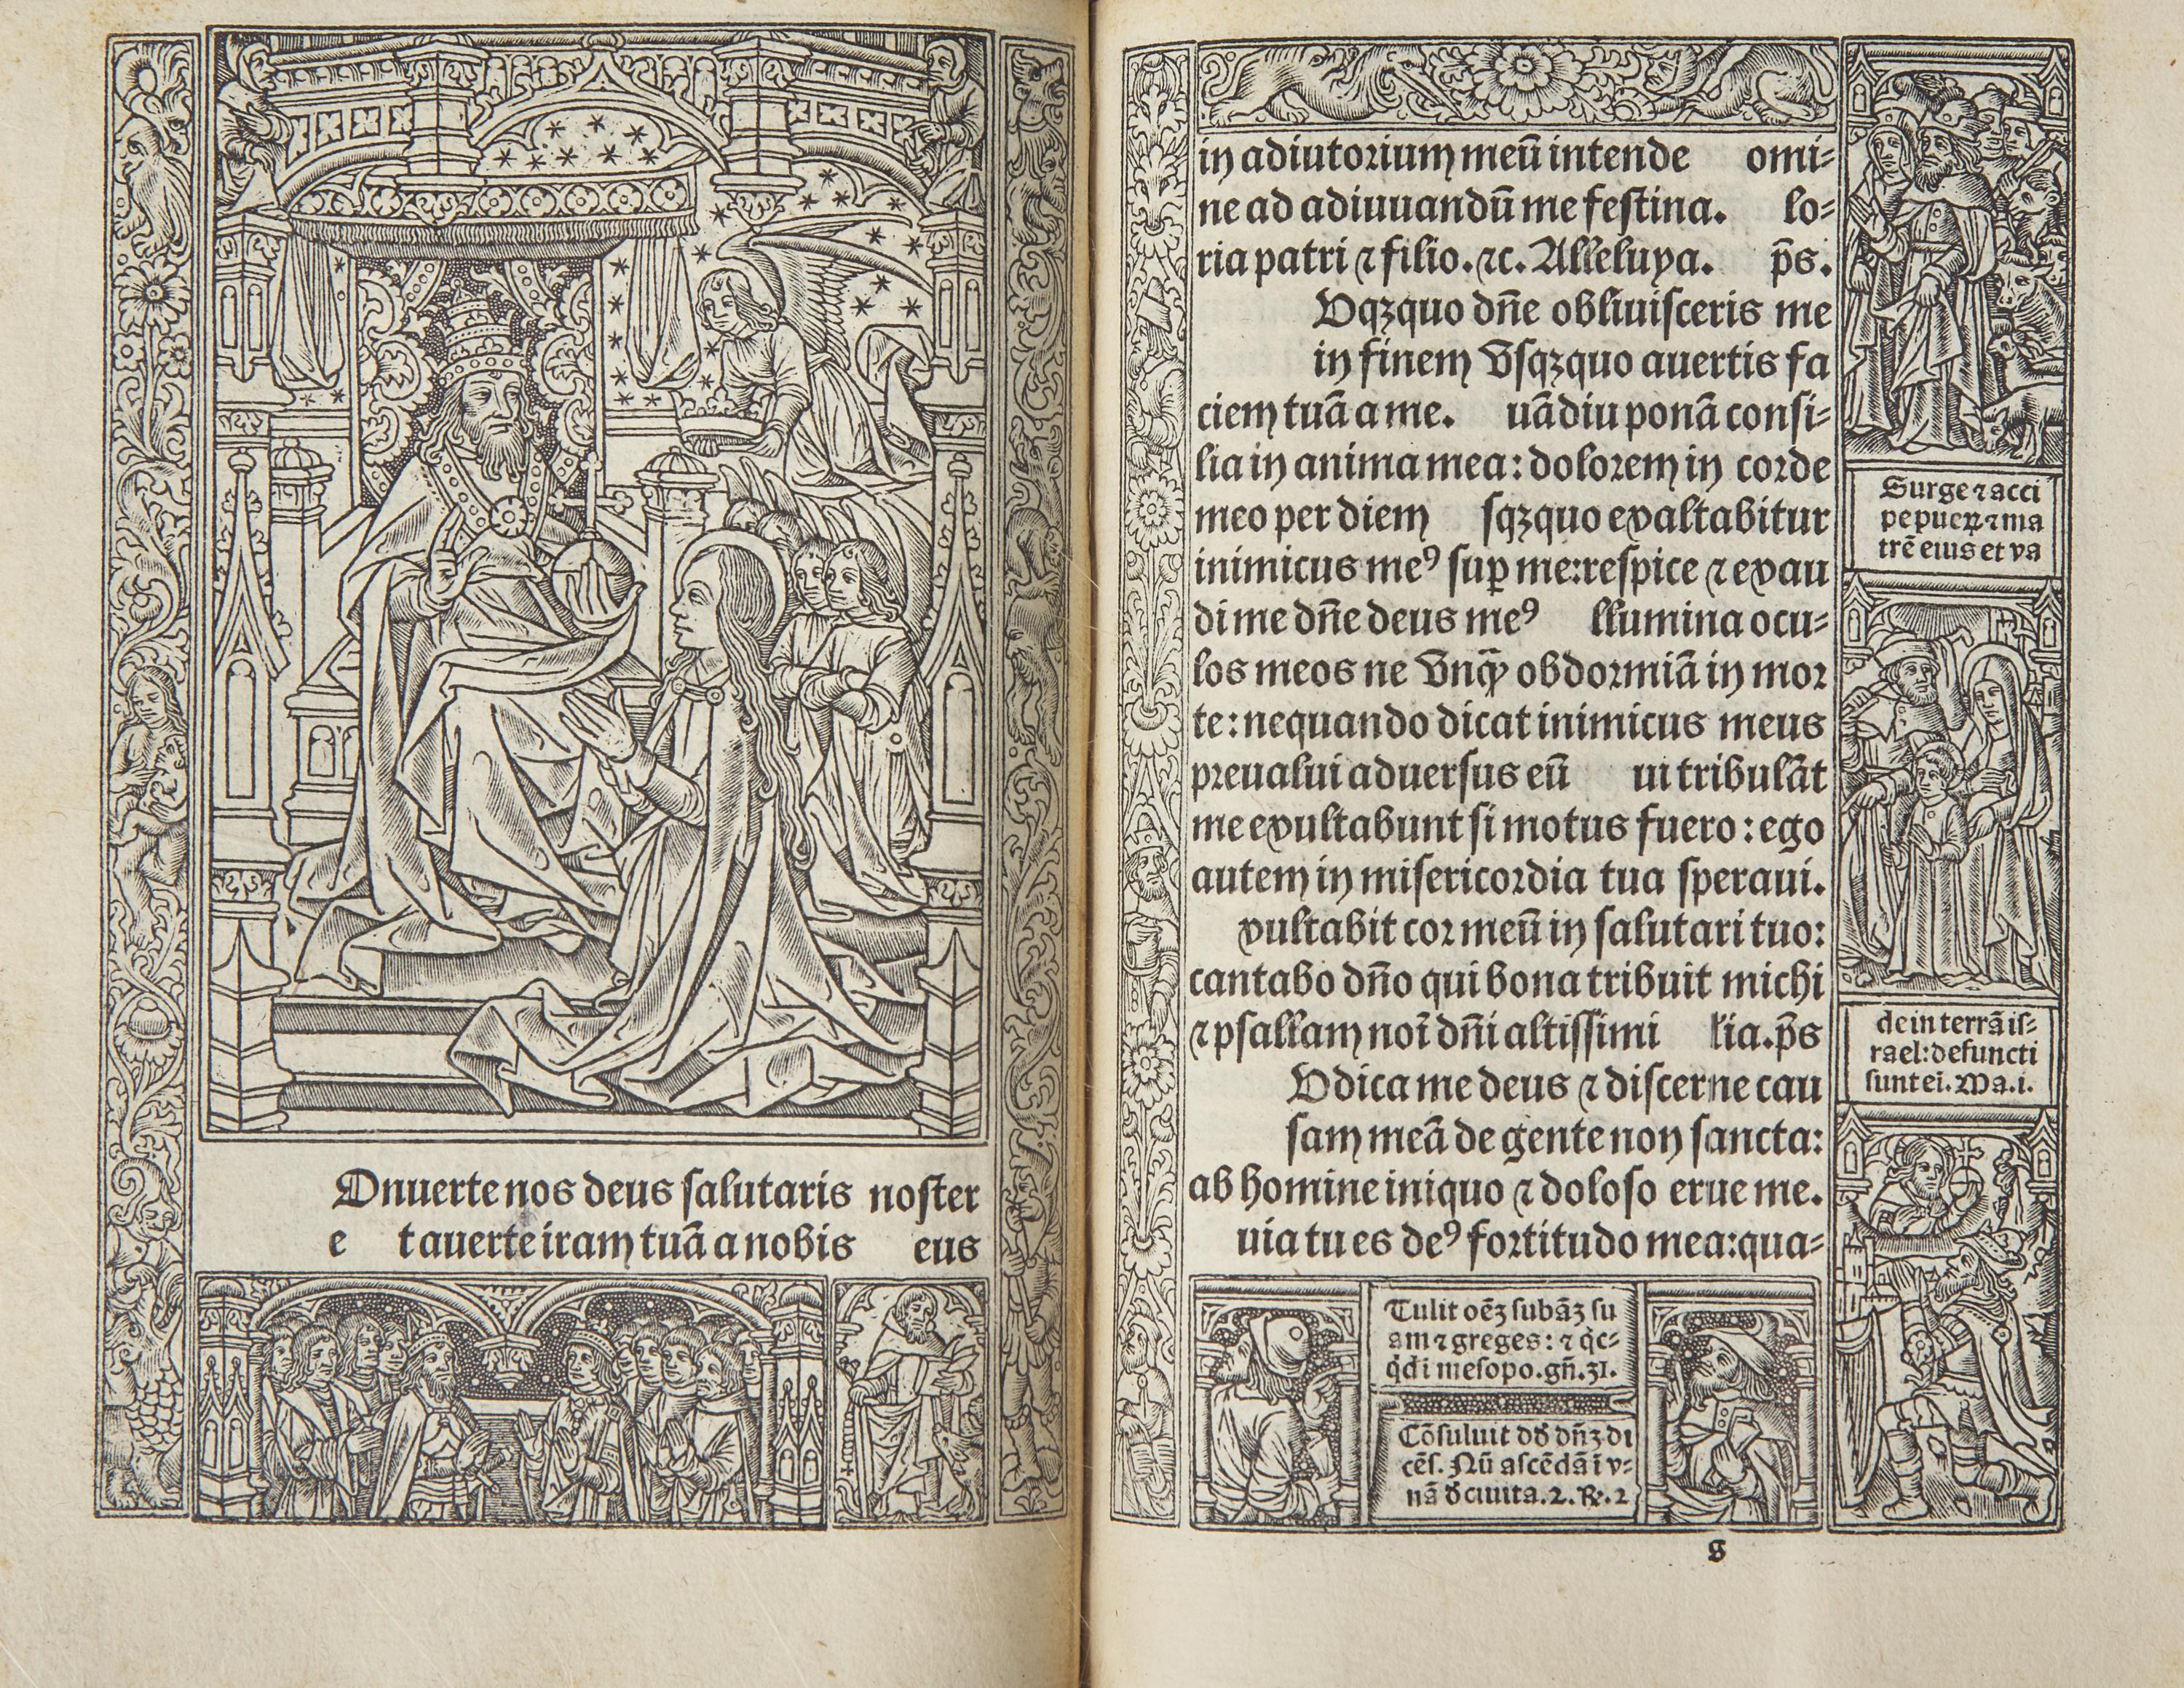 Onuerte nos deus salutaris noster
e t auerte iram tuā a nobis eus
in adiutorium meū intende omi-
ne ad adiuuandū me festina. lo-
ria patri ⁊ filio. ⁊c. Alleluya. p̄s.
Vqꝫquo dn̄e obliuisceris me
in finem Vsqꝫquo auertis fa
ciem tuā a me. uādiu ponā consi-
lia in anima mea: dolorem in corde
meo per diem sqꝫquo exaltabitur
inimicus meꝰ suꝑ me: respice ⁊ exau
di me dn̄e deus meꝰ llumina ocu-
los meos ne vnq̄ꝫ obdormiā in mor
te: nequando dicat inimicus meus
preualui aduersus eū ui tribulāt
me exultabunt si motus fuero: ego
autem in misericordia tua speraui.
xultabit cor meū in salutari tuo:
cantabo dn̄o qui bona tribuit michi
⁊ psallam noī dn̄i altissimi lia. p̄s
Vdica me deus ⁊ discerne cau
sam meā de gente non sancta:
ab homine iniquo ⁊ doloso erue me.
uia tu es deꝰ fortitudo mea: qua-
Surge ⁊ acci
pe pueꝝ ⁊ ma
trē eius et va
de in terrā is-
rael: defuncti
sunt ei. Ma. i.
Tulit oēꝫ subāꝫ su
am ⁊ greges: ⁊ q̇c-
q̇d i mesopo. gn̄. 31.
Cōsuluit dd̄ dn̄ꝫ di
cēs. Nū ascēdā i v-
nā d̄ ciuita. 2. R. 2
s